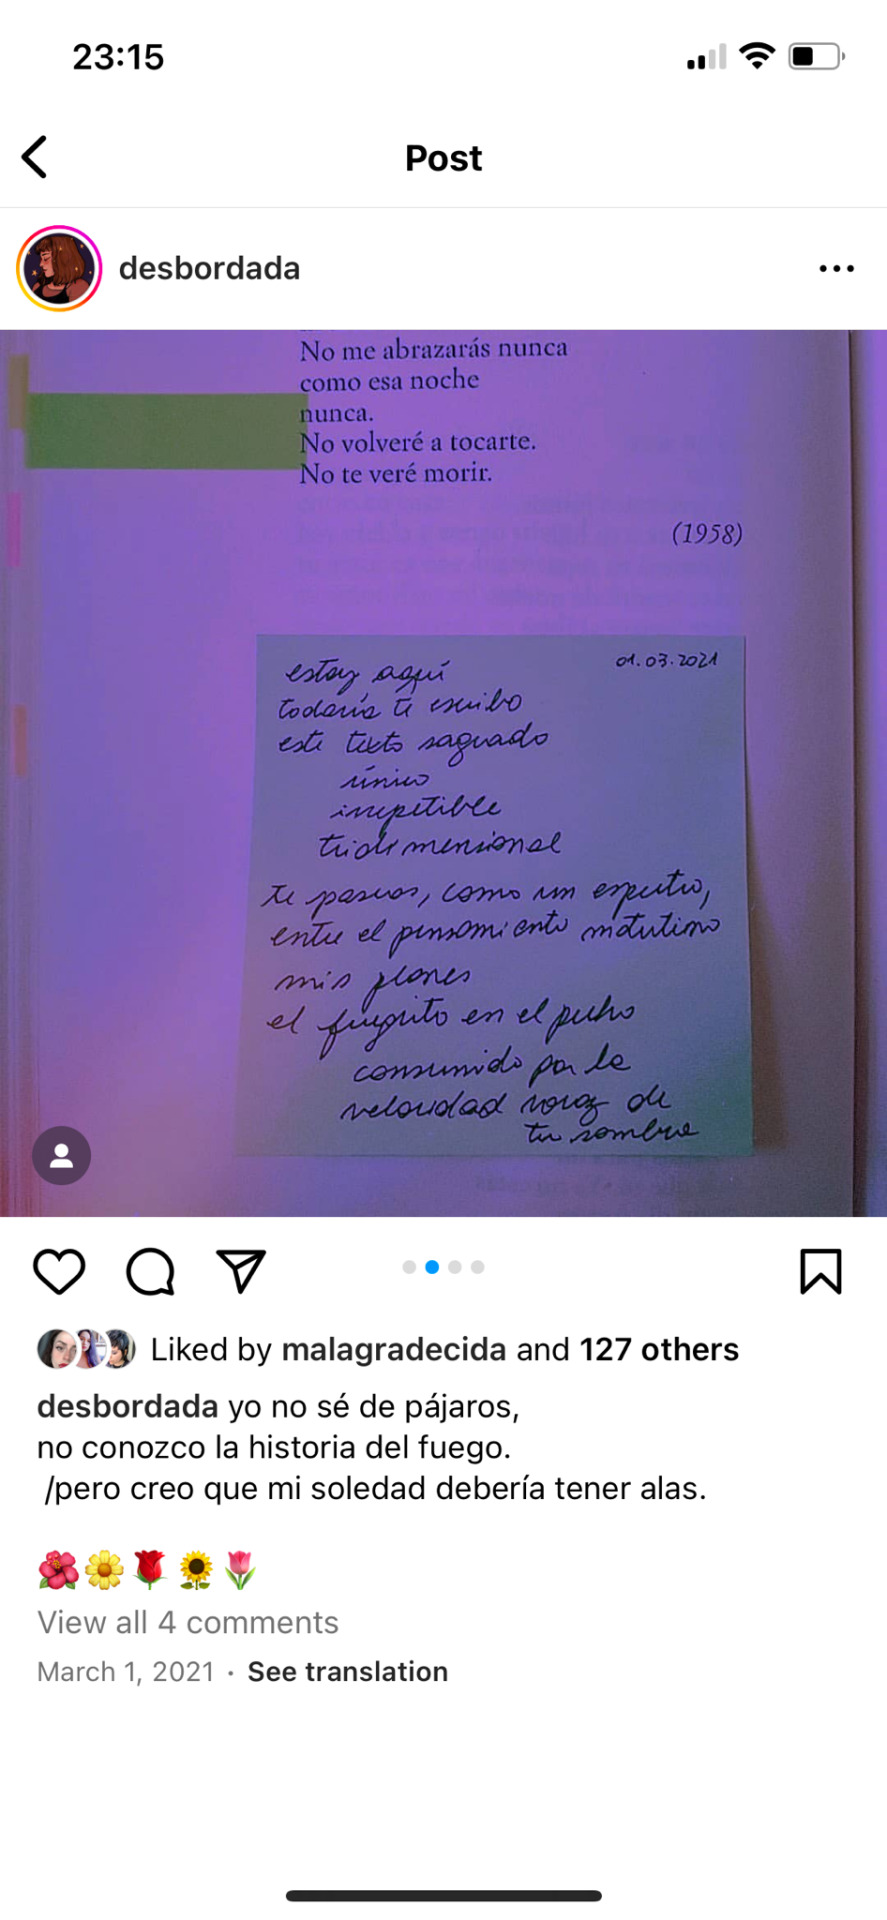 23:15
Post
desbordada
No me abrazarás nunca
como esa noche
nunca.
No volveré a tocarte.
No te veré morir.
(1958)
01.03.2021
estoy aquí
todavía te escribo
este texto sagrado
único
irrepetible
tridimensional
te paseas, como un espectro,
entre el pensamiento matutino
mis planes
el fueguito en el pecho
consumido por la
velocidad voraz de
tu sombra
Liked by malagradecida and 127 others
desbordada yo no sé de pájaros,
no conozco la historia del fuego.
/pero creo que mi soledad debería tener alas.
🌺🌼🌹🌻🌷
View all 4 comments
March 1, 2021 · See translation